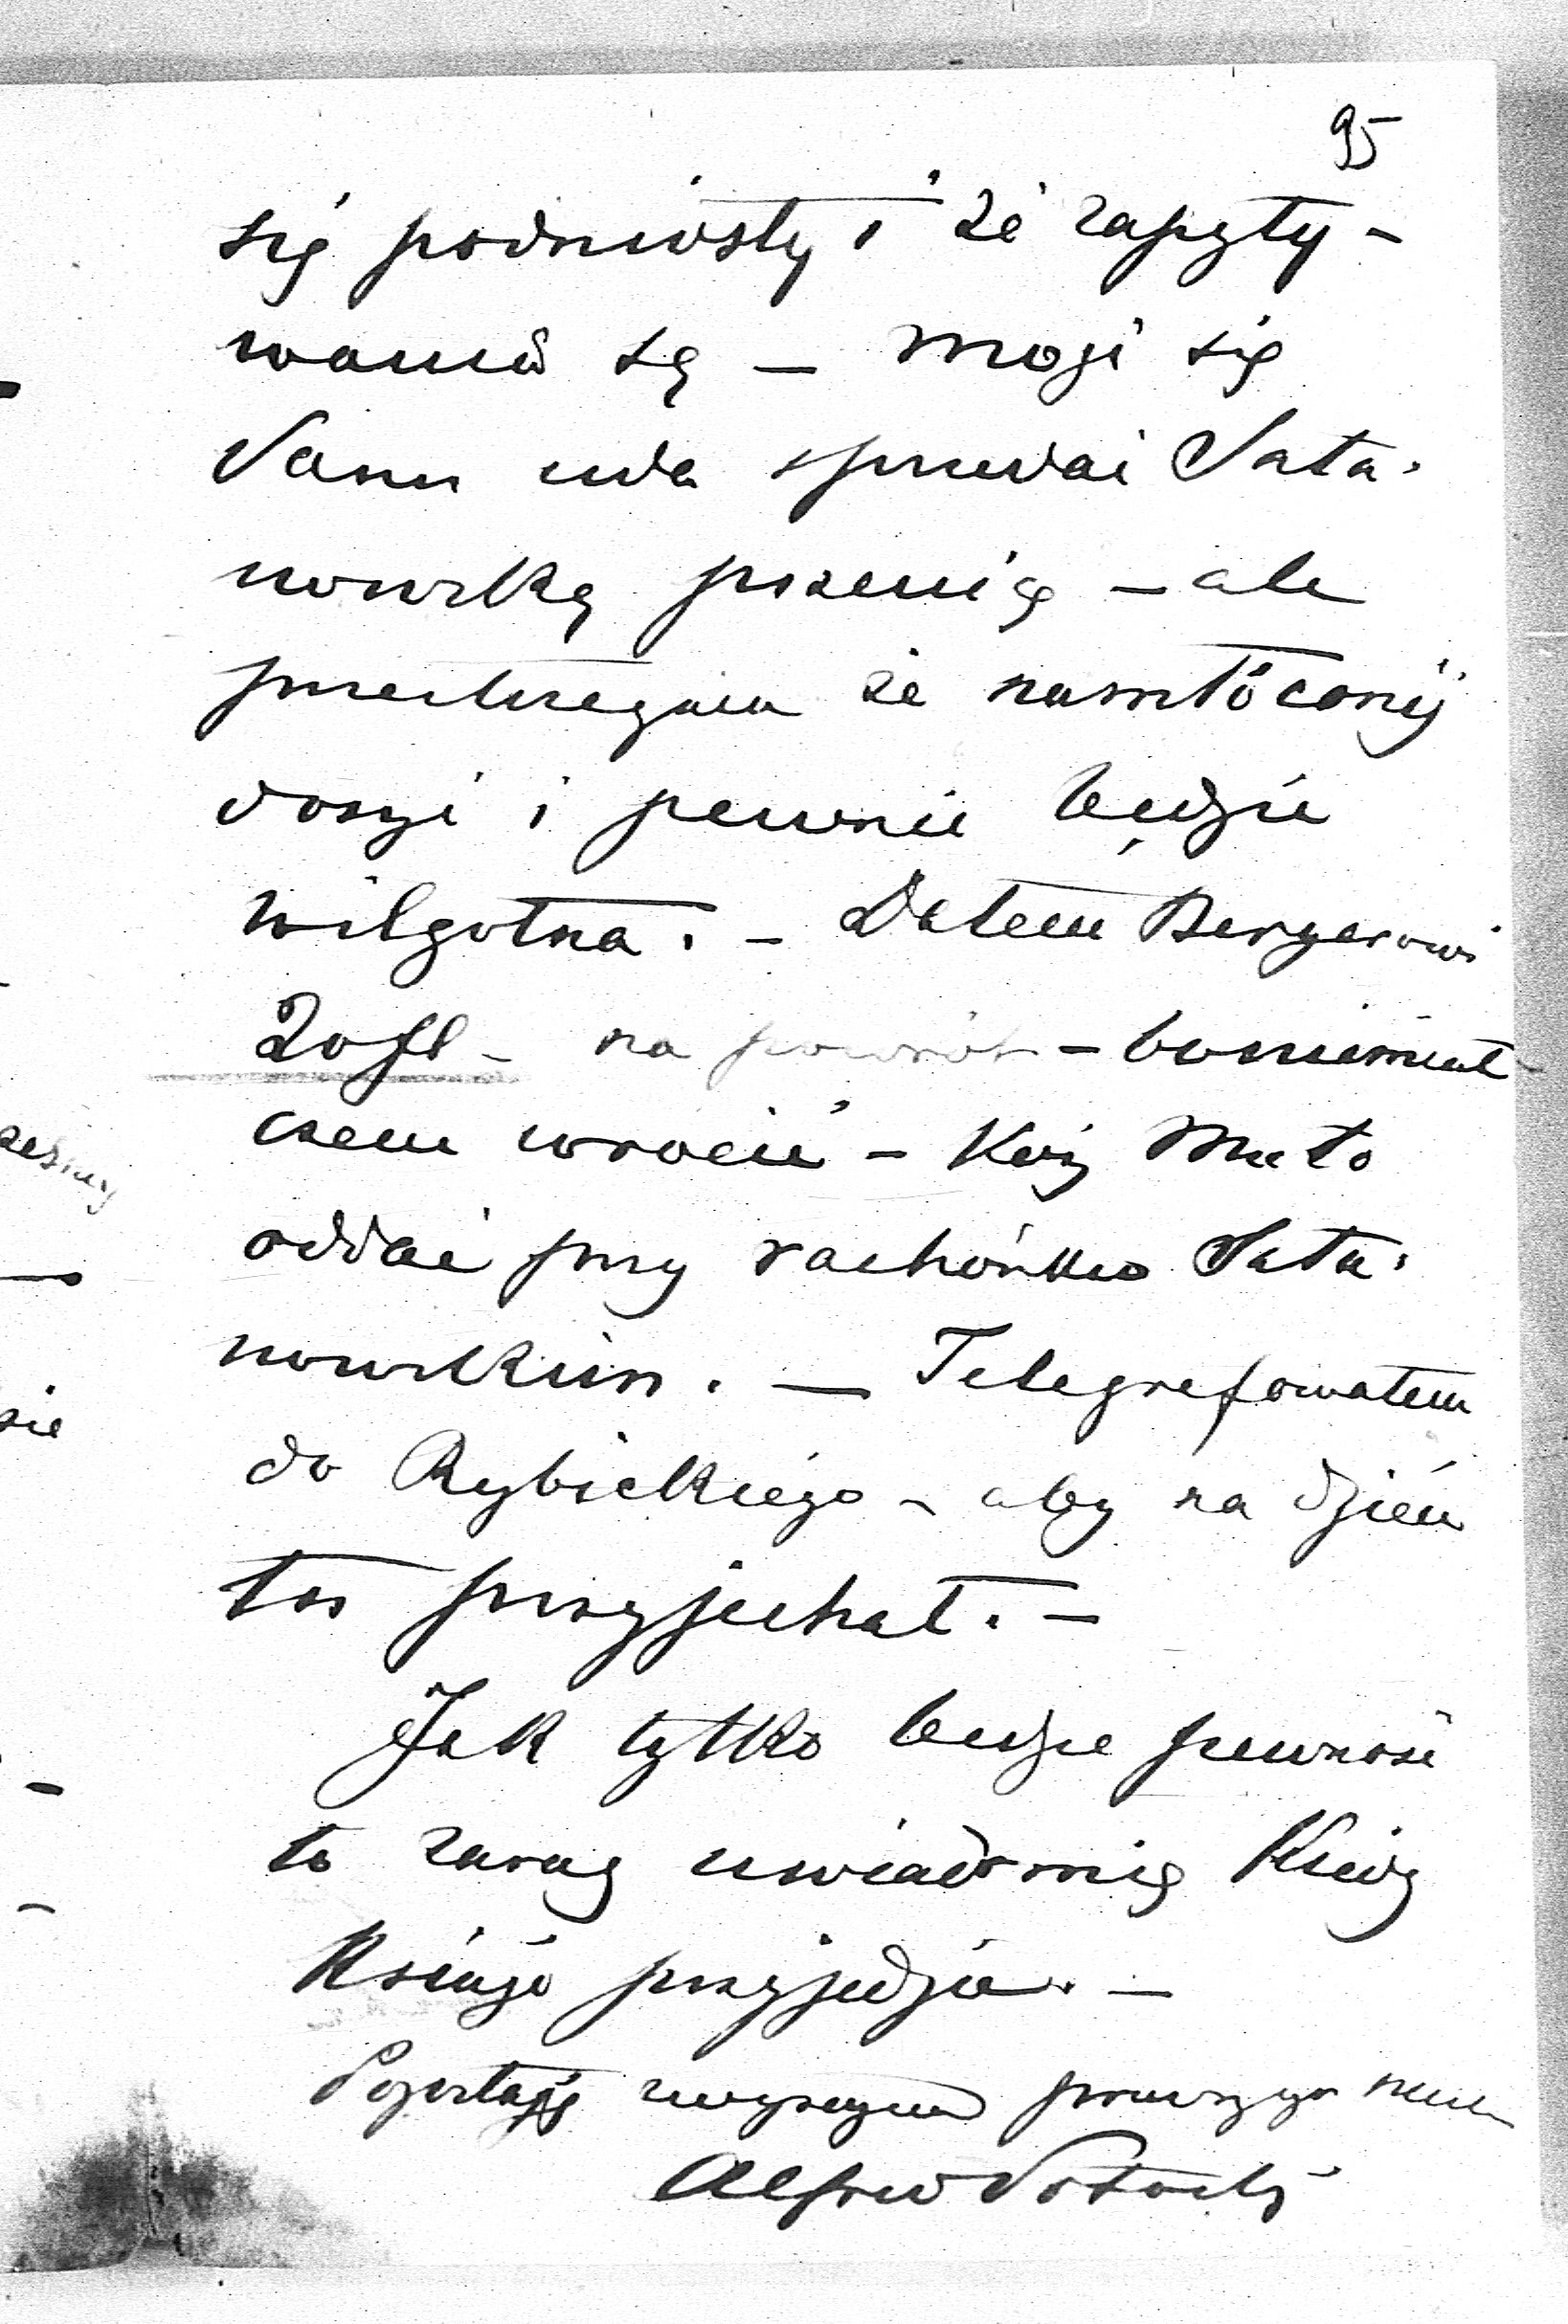 95
się podniosły i że zapyty-
wania są – może się
Panu uda sprzedać Sata-
nowską pszenicę – ale
przestrzegam że namłóconej
dosyć i pewnie będzie
wilgotna. – Dałem Bergerowi
20 fl – na powrót – bo nie miał
czem wrócić – Każ mu to
oddać przy rachónku Sata-
nowskim. – Telegrafowałem
do Rybickiego – aby na dzień
ten przyjechał. –
Jak tylko będzie pewność
to zaraz uwiadomię kiedy
Książe przyjedzie. –
Pozostaję
Alfred Potocki